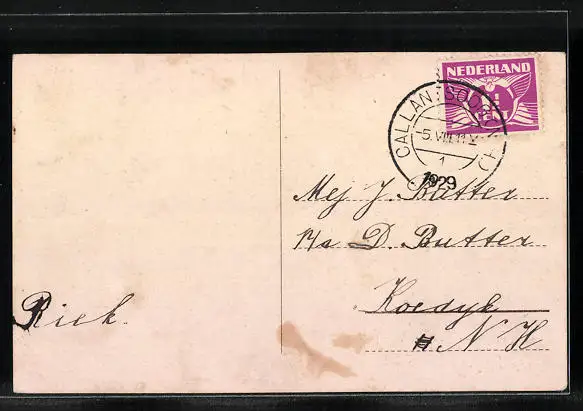 NEDERLAND
CENT
CALLANTSOOG
-5.VIII.11 V
1
1929
Mej J. Butter
P/a D. Butter
Koedyk
N H
Riek.